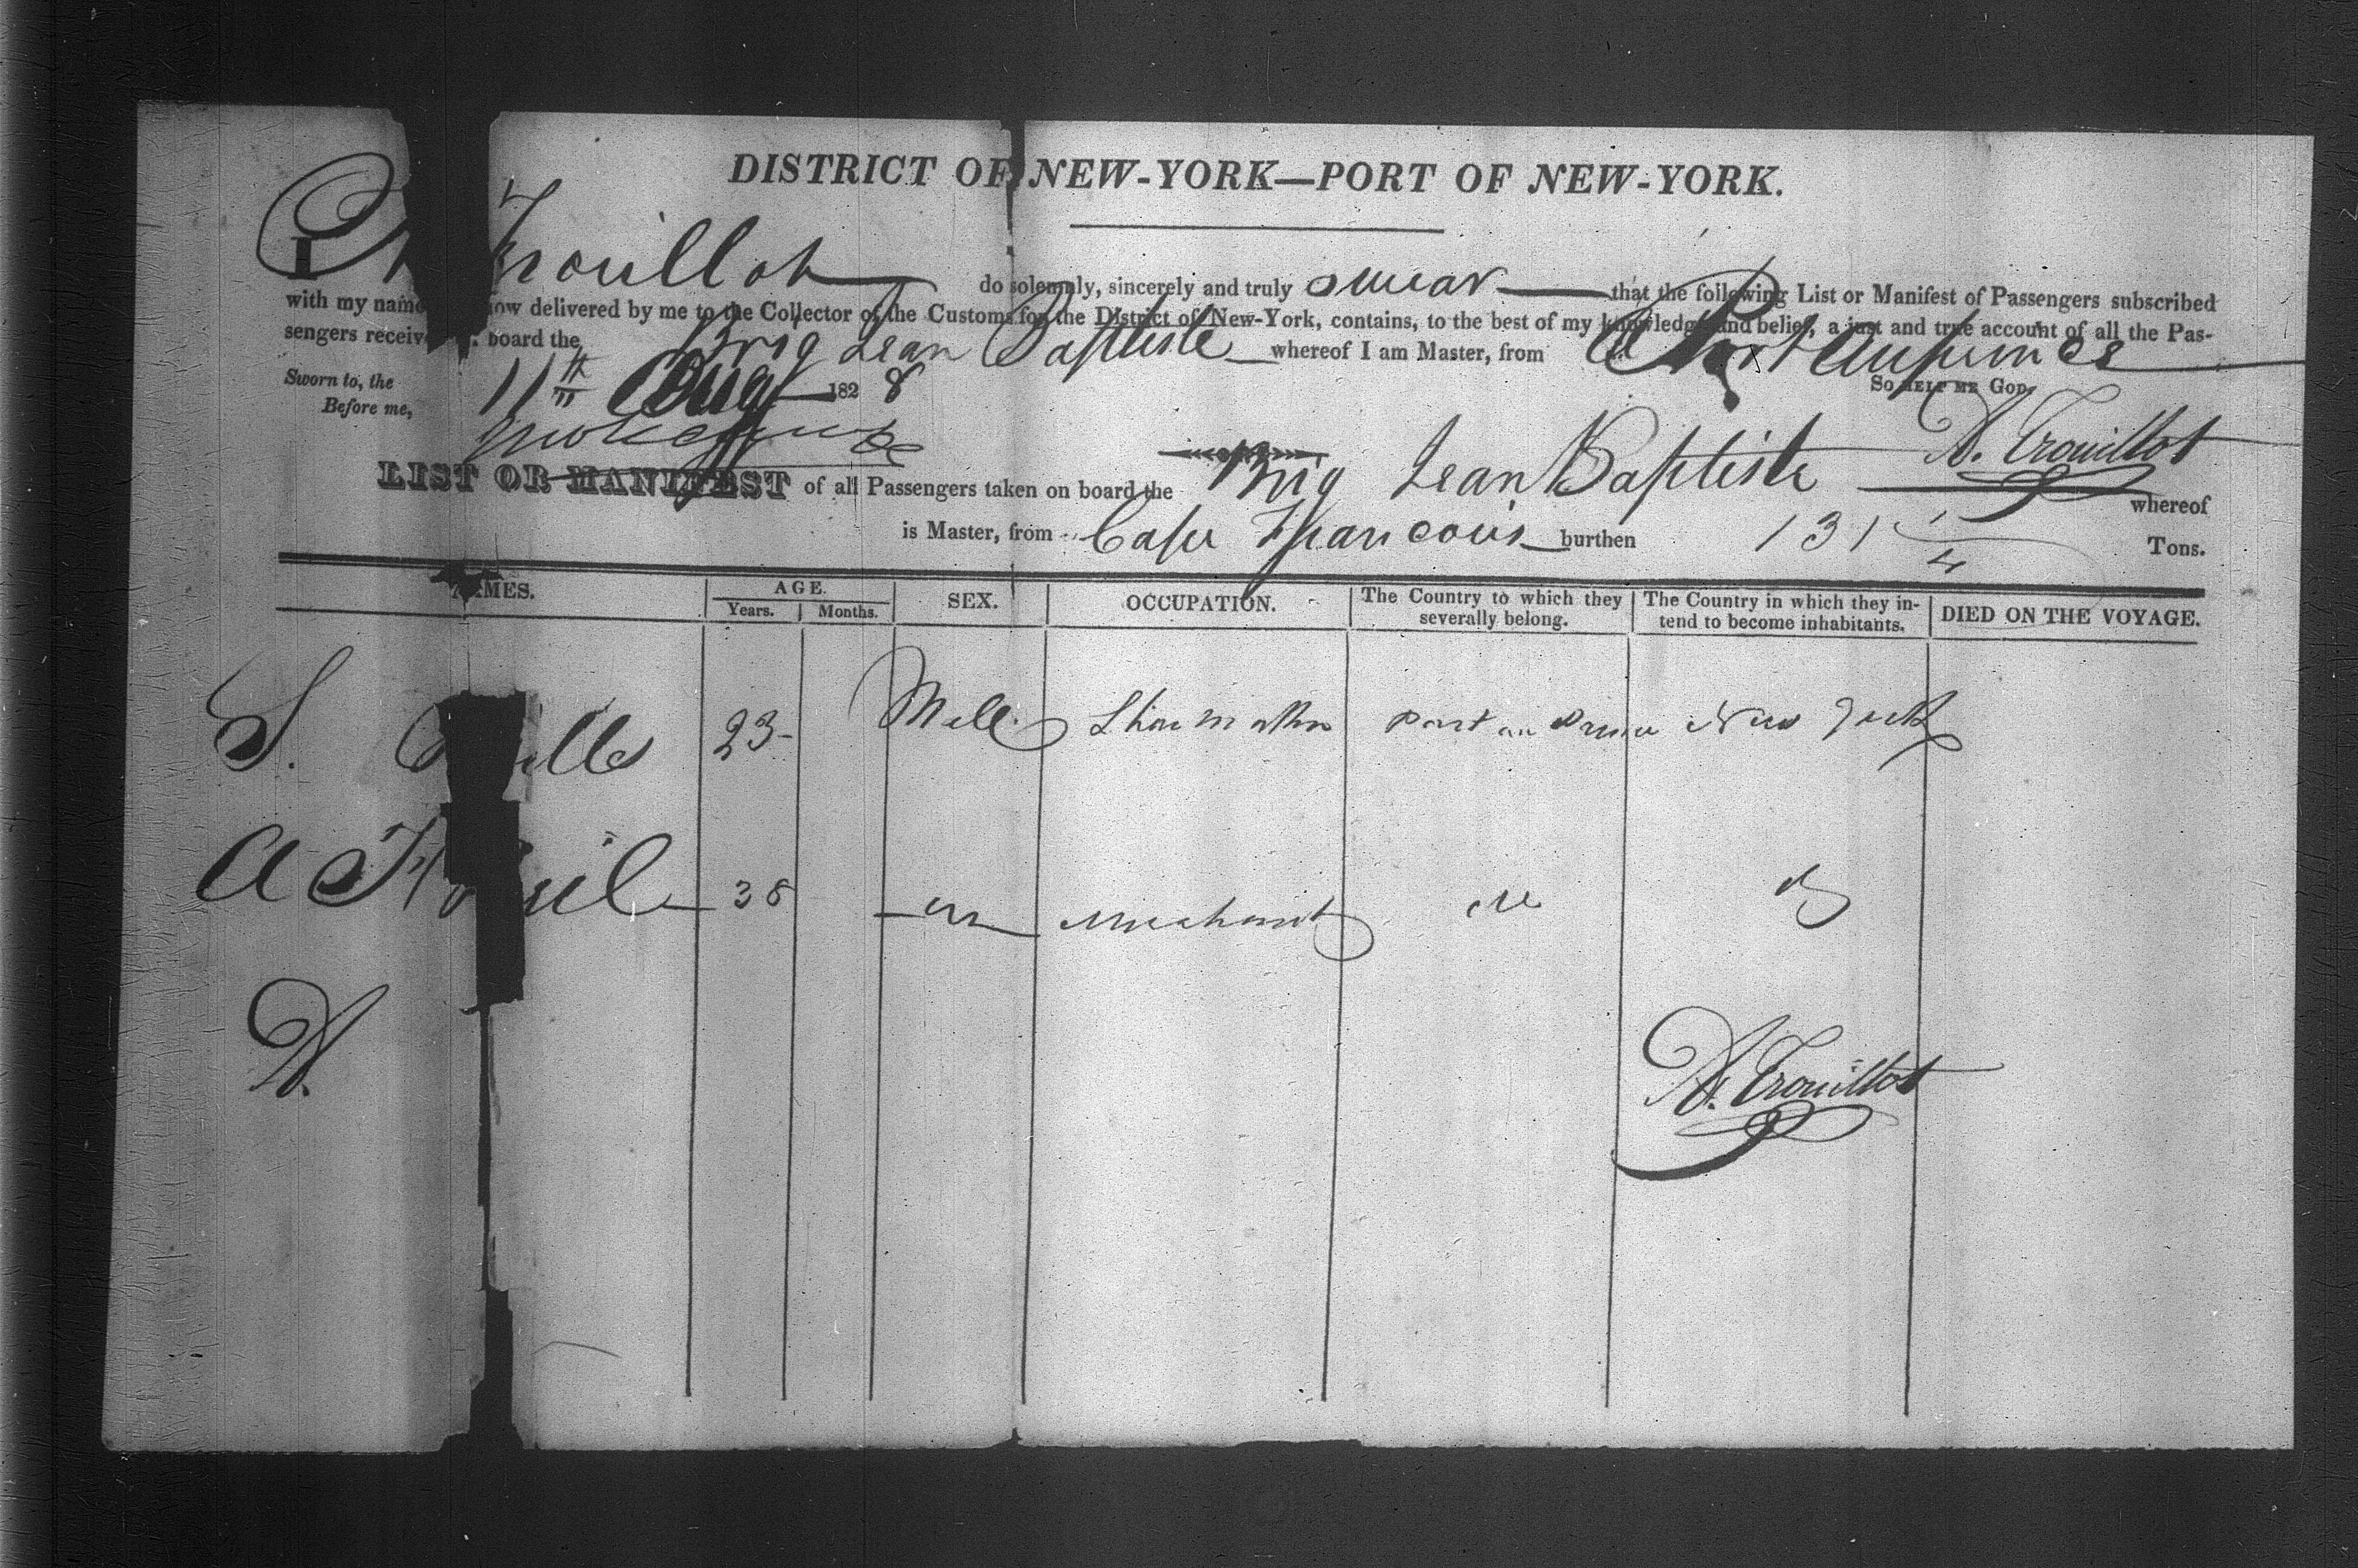 DISTRICT OF NEW-YORK—PORT OF NEW-YORK.
I Trouillot do solemnly, sincerely and truly swear that the following List or Manifest of Passengers subscribed
with my name now delivered by me to the Collector of the Customs for the District of New-York, contains, to the best of my knowledge and belief, a just and true account of all the Pas-
sengers received board the Brig Jean Baptiste whereof I am Master, from Port au prince
Sworn to, the 11th Aug 1828 So HELP ME GOD,
Before me,
A. Trouillot
LIST OR MANIFEST of all Passengers taken on board the Brig Jean Baptiste whereof
is Master, from Cape Francois burthen 131 1/4 Tons.
NAMES. AGE. SEX. OCCUPATION. The Country to which they severally belong. The Country in which they in-tend to become inhabitants. DIED ON THE VOYAGE.
Years. Months.
S. 23 Male Port au Prince New York
A 38 merchant
A. Trouillot